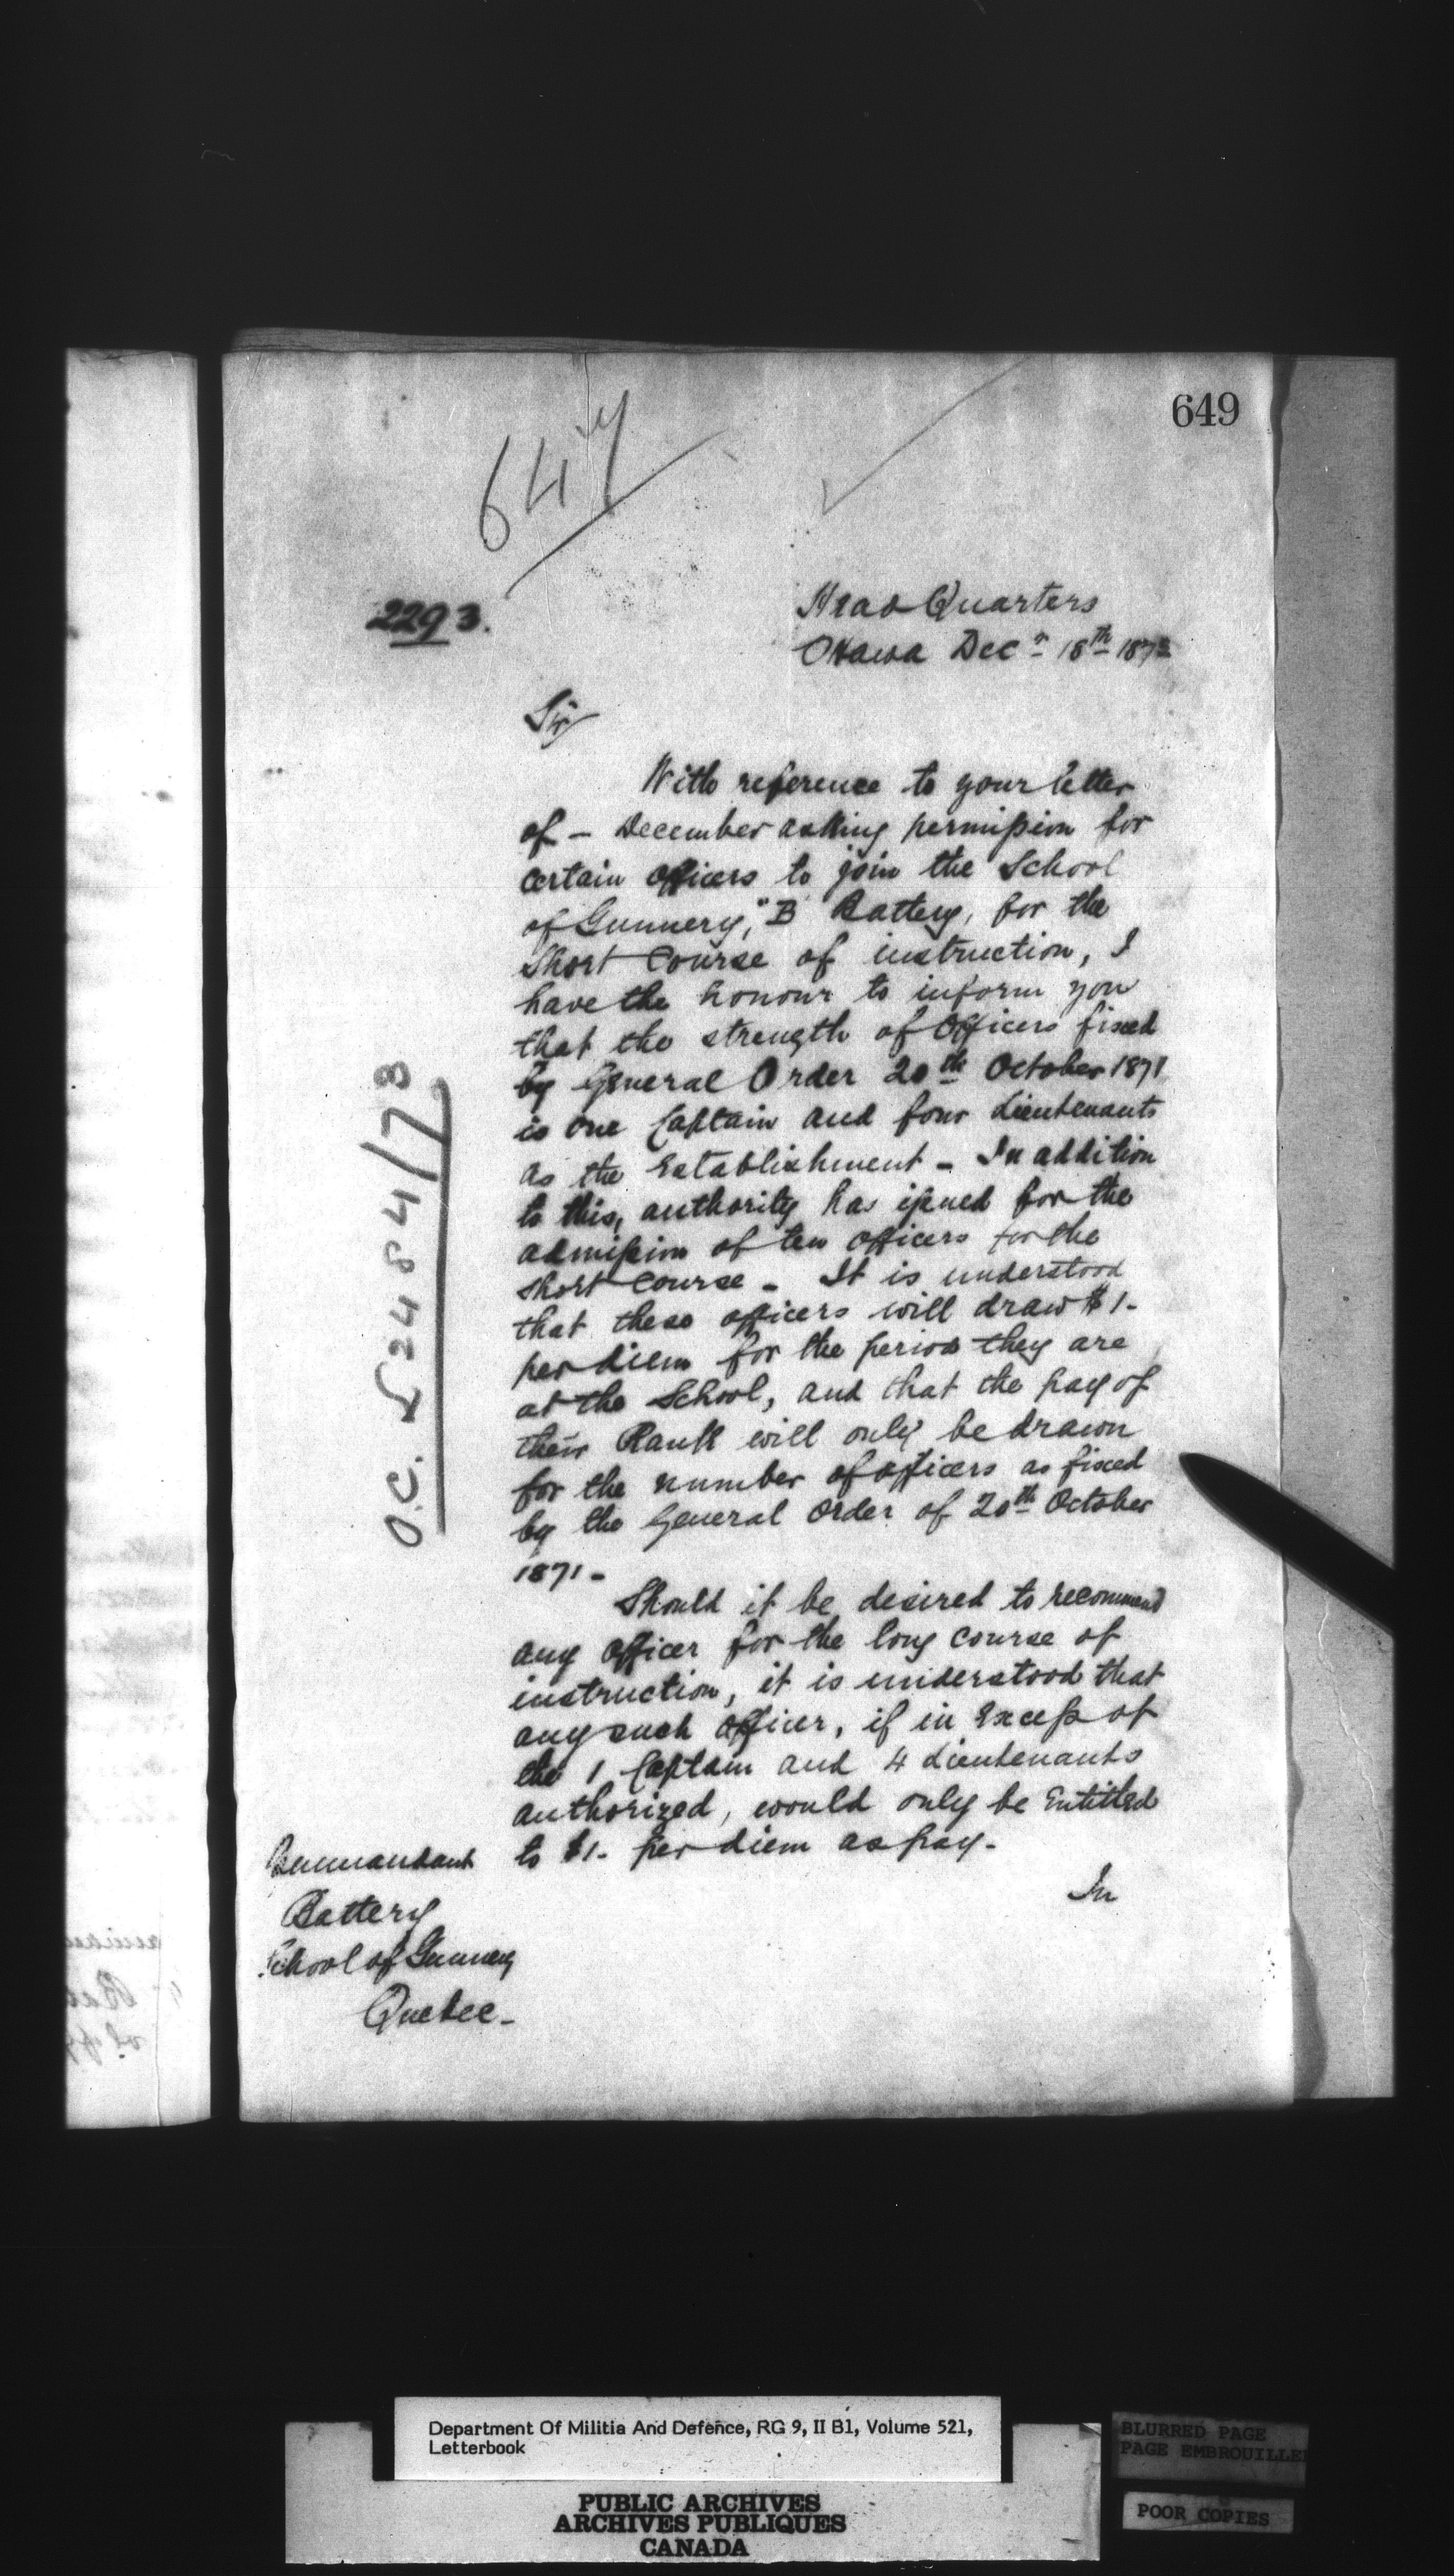 649
2293.
Head Quarters
Ottawa Decr 18th 187
Sir
With reference to your letter
of - December asking permission for
certain officers to join the School
of Gunnery, "B" Battery, for the
Short Course of instruction, I
have the honour to inform you
that the strength of Officers fixed
by General Order 20th October 1871
is one Captain and four Lieutenants
as the Establishment - In addition
to this, authority has issued for the
admission of ten officers for the
short course - It is understood
that these officers will draw $1-
per diem for the period they are
at the School, and that the pay of
their Rank will only be drawn
for the number of officers as fixed
by the General Order of 20th October
1871 -
Should it be desired to recommend
any officer for the long course of
instruction, it is understood that
any such officer, if in Excess of
the 1 Captain and 4 Lieutenants
authorized, would only be Entitled
to $1- per diem as pay-
In
Commandant
Battery
School of Gunnery
Quebec-
O.C. 2484/73
Department Of Militia And Defence, RG 9, II B1, Volume 521,
Letterbook
PUBLIC ARCHIVES
ARCHIVES PUBLIQUES
CANADA
BLURRED PAGE
PAGE EMBROUILLEE
POOR COPIES